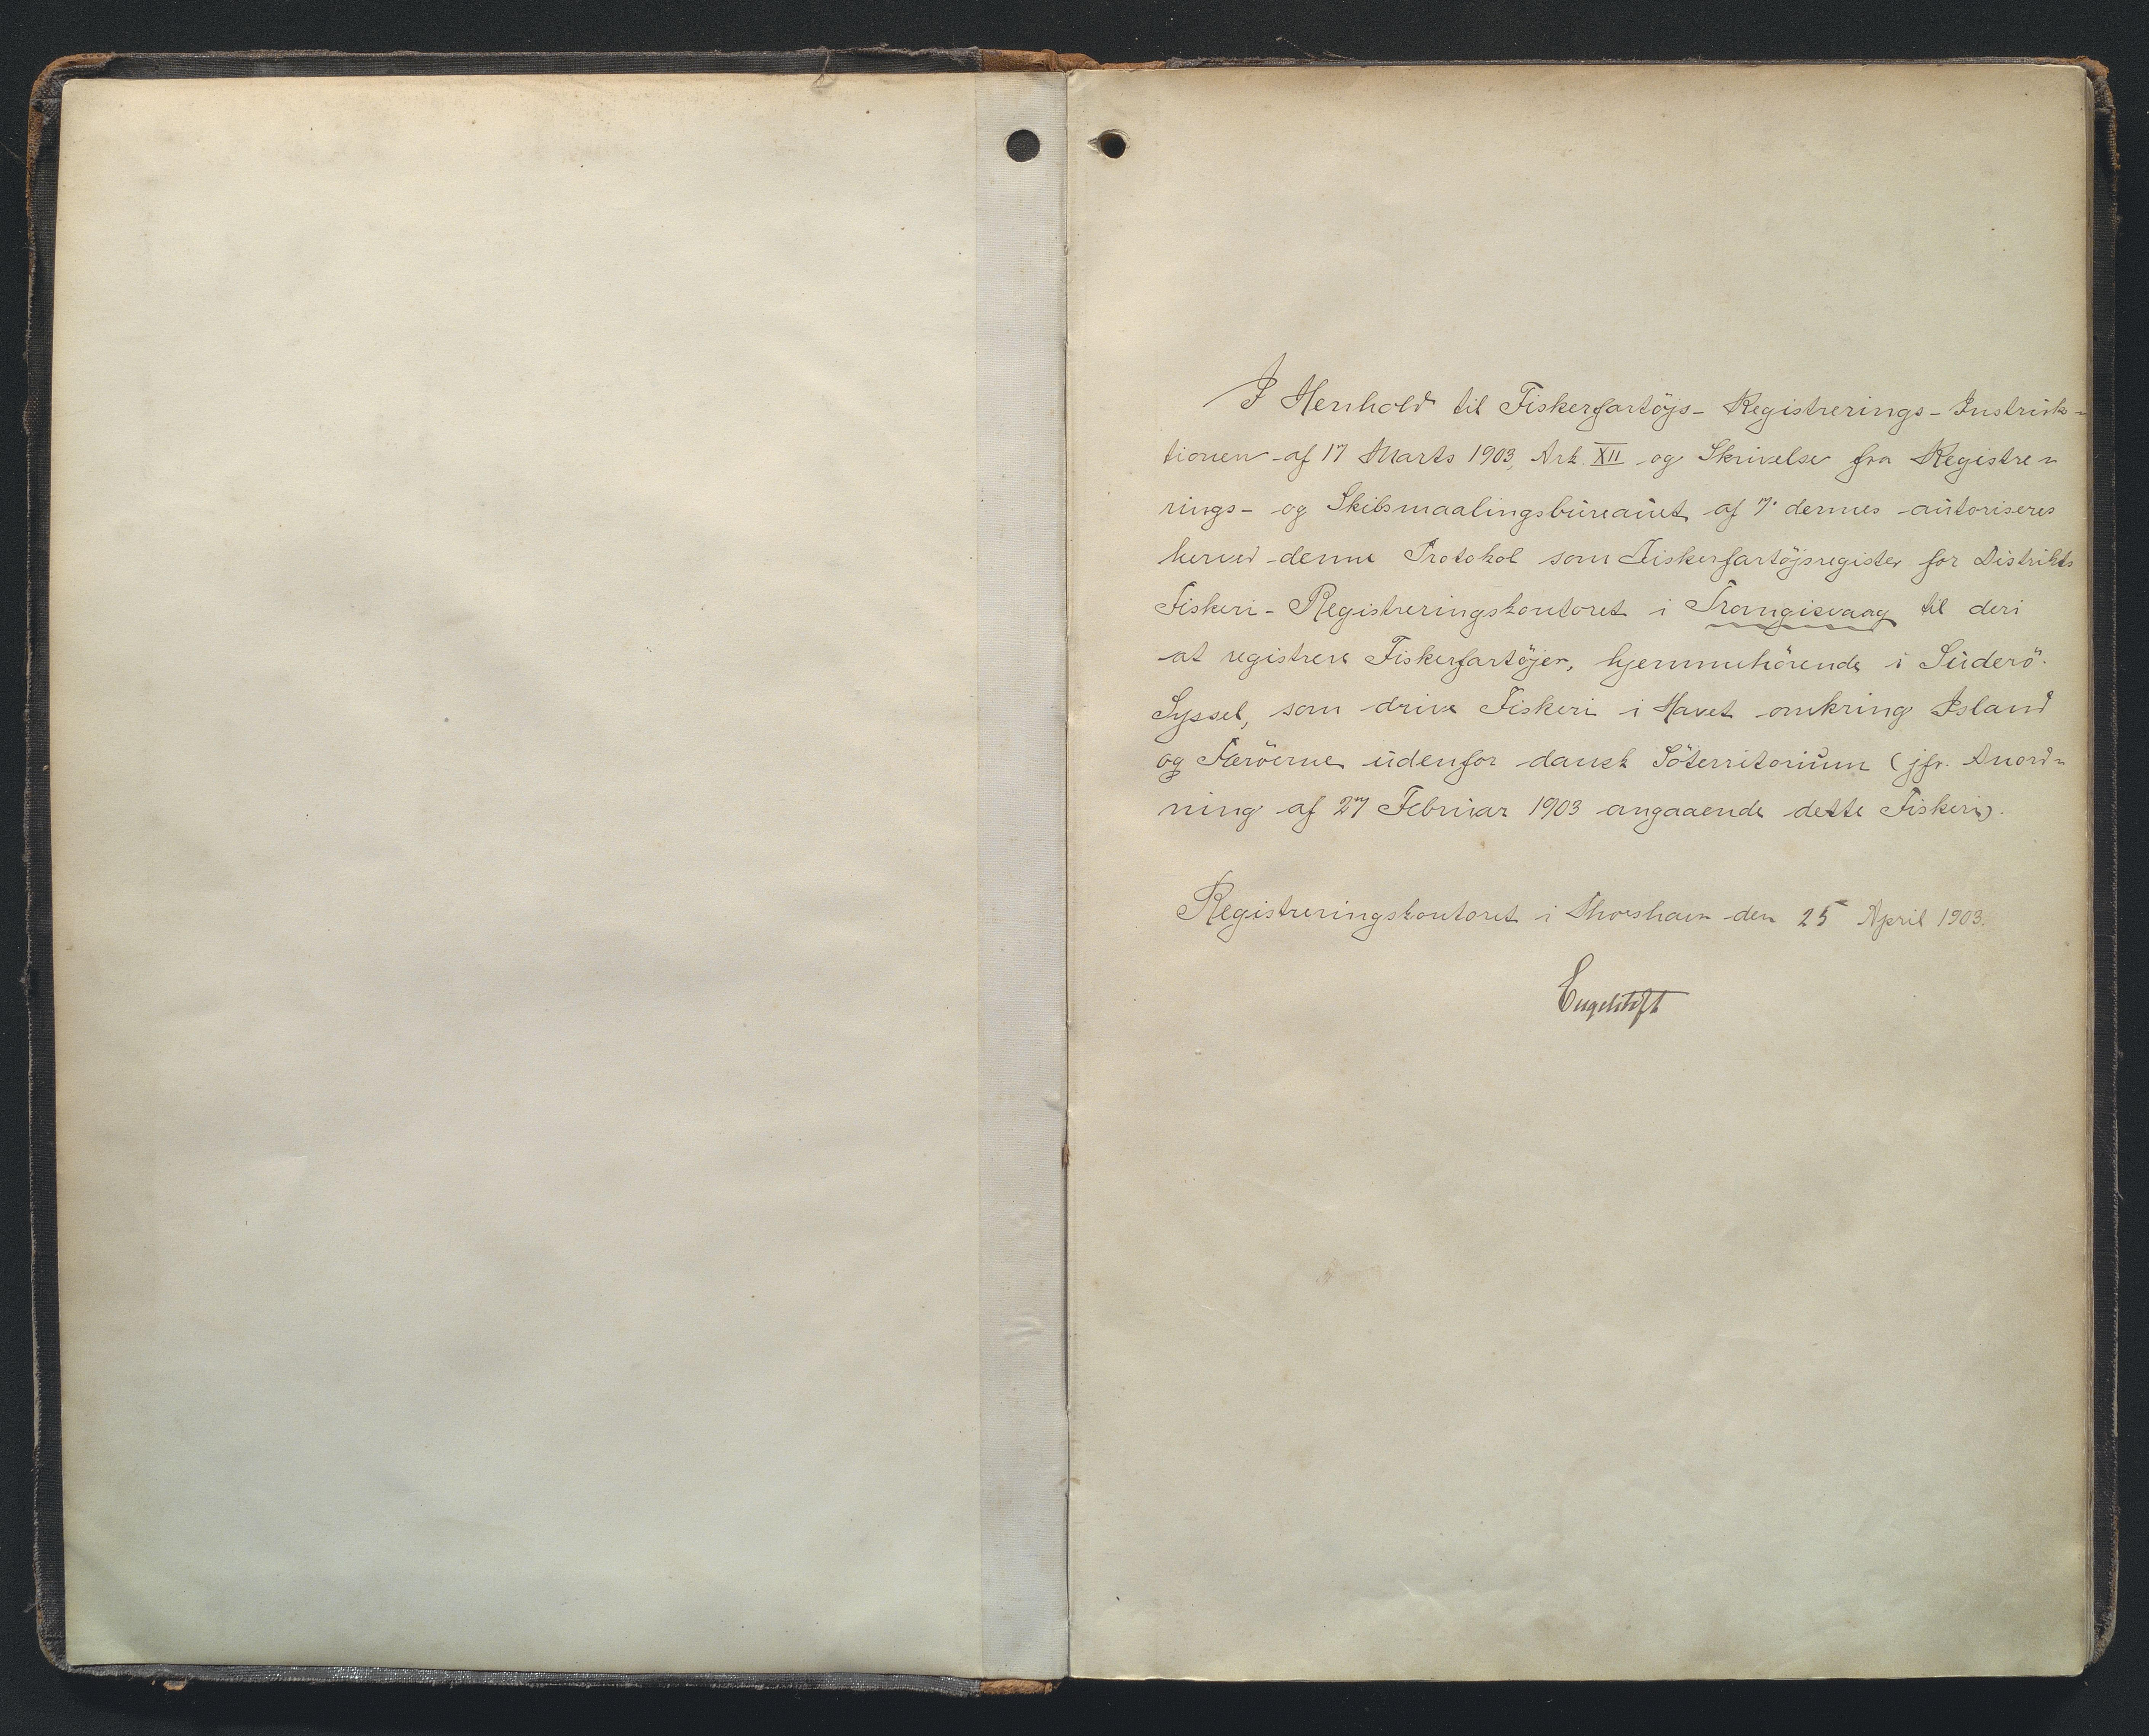 I Henhold til Fiskerfartöjs-Registrerings-Instruk-
tionen af 17 Marts 1903, Art. XII og Skrivelse fra Registre-
rings- og Skibsmaalingsbureauet af 7. dennes autoriseres
herved denne Protokol som Fiskerfartöjsregister for Distrikts
Fiskeri-Registreringskontoret i Trangisvaag til deri
at registrere Fiskerfartöjer, hjemmehörende i Süderö
Syssel, som drive Fiskeri i Havet omkring Island
og Færöerne udenfor dansk Söterritorium (jfr. Anord-
ning af 27 Februar 1903 angaaende dette Fiskeri).
Registreringskontoret i Thorshavn den 25 April 1903.
Engelstoft